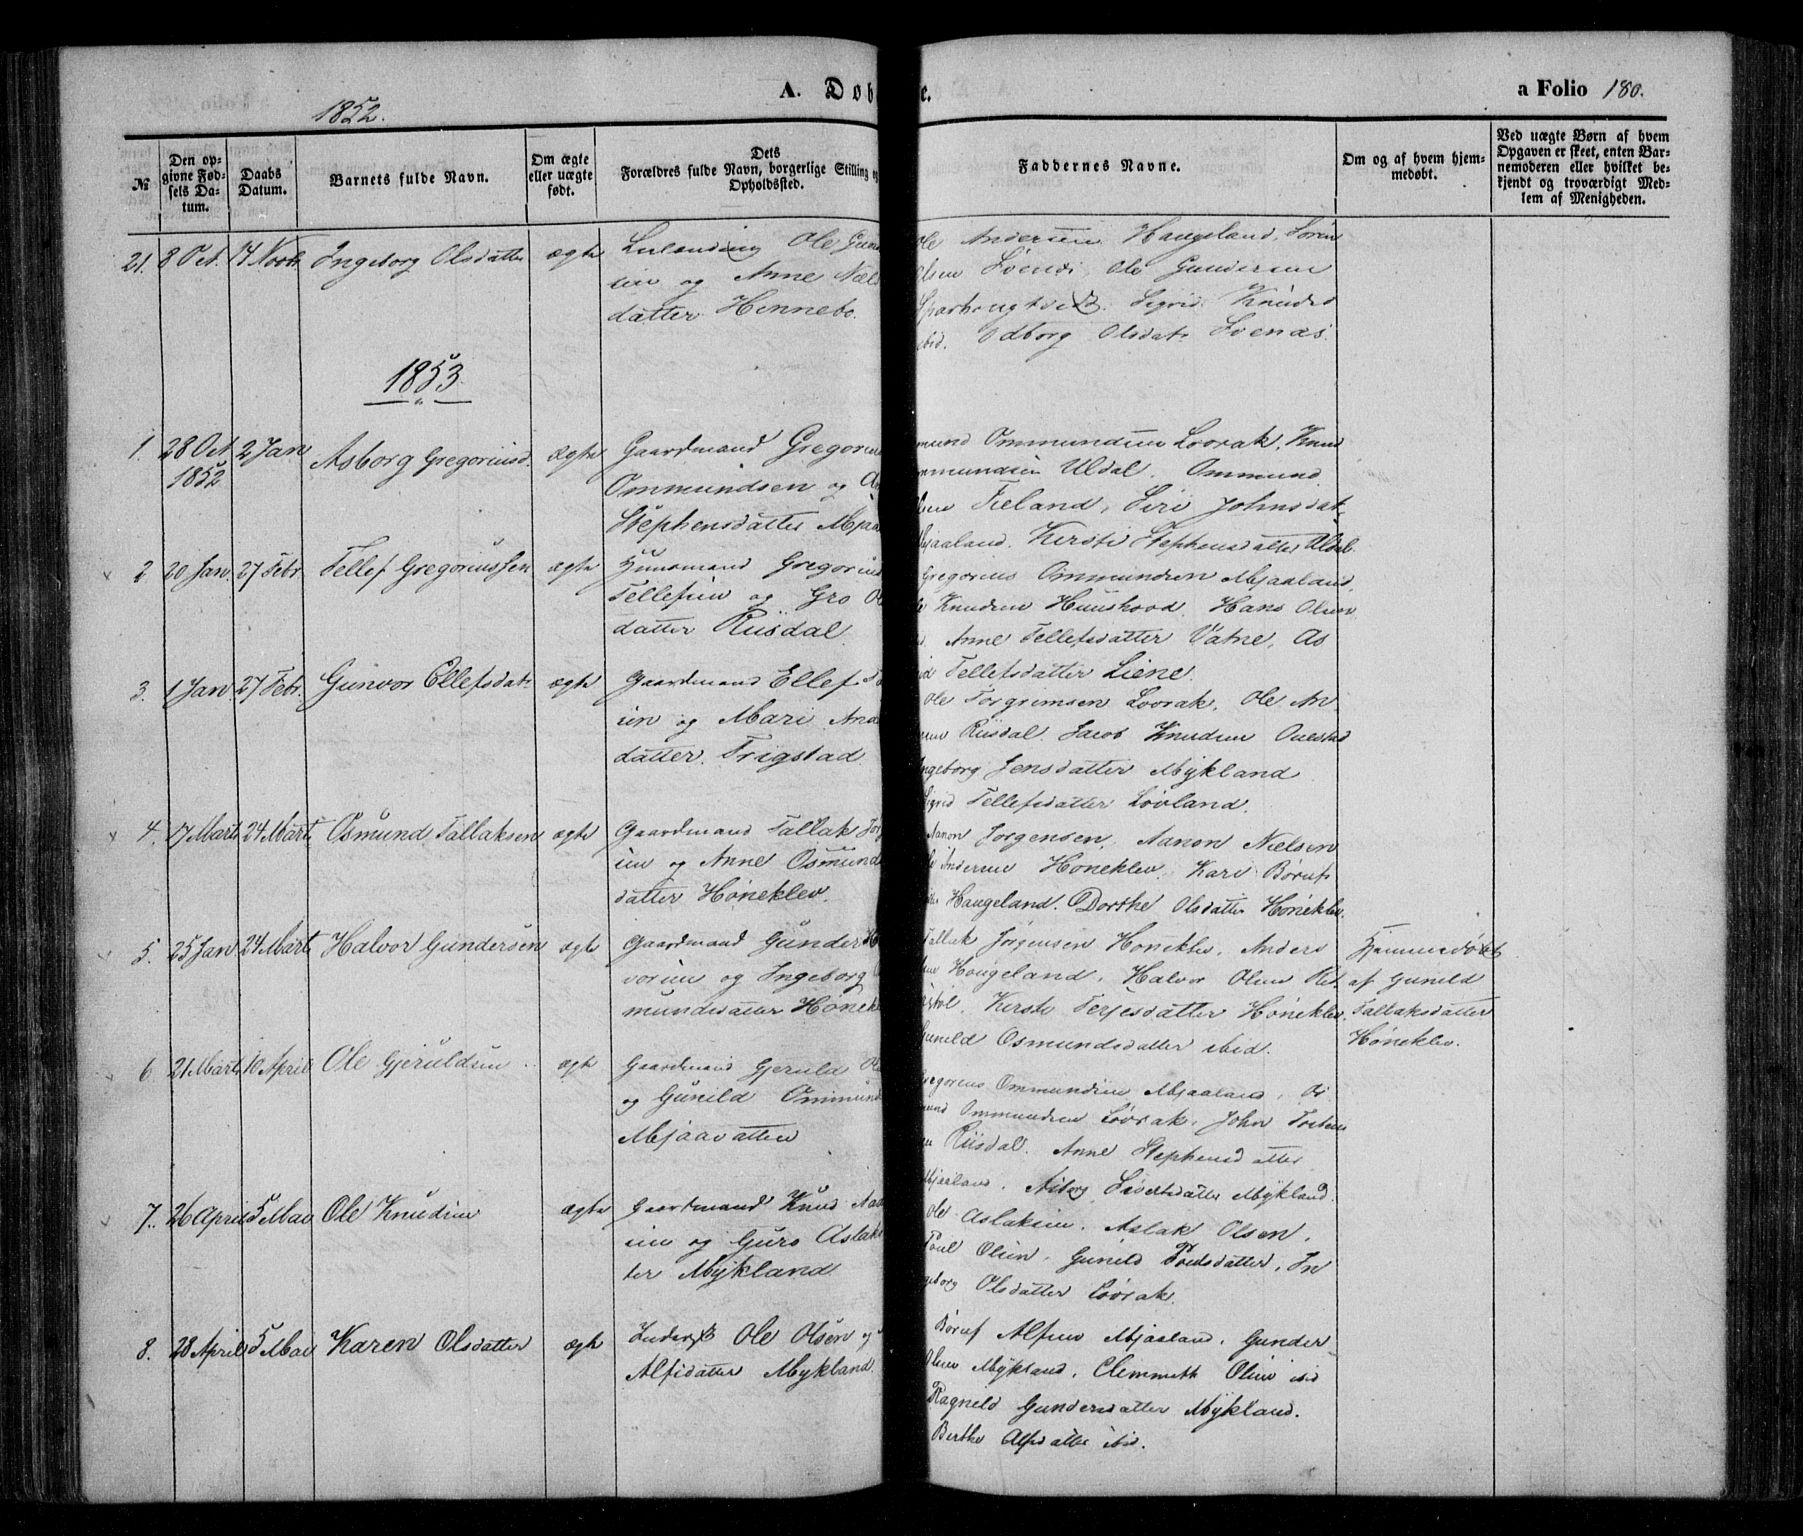 A. Døb e.
a Folio 180.
1852.
№
Den op-
givne Fød-
sels Da-
tum.
Daabs
Datum.
Barnets fulde Navn.
Om ægte
eller uægte
født.
Dets
Forældres fulde Navn, borgerlige Stilling og
Opholdssted.
Faddernes Navne.
Om og af hvem hjem-
medøbt.
Ved uægte Børn af hvem
Opgaven er skeet, enten Bar-
nemoderen eller hvilket be-
kjendt og troværdigt Med-
lem af Menigheden.
21. 8 Oct. 14 Novb Ingeborg Olsdatter ægte Ole Gun
sen og Anne Næls
datter Hinnebo.
Ole Andersen Haugeland, Søren
Olsen Svenås, Ole Gundersen
Sigrid Knuds
ibid. Odborg Olsdat. Svenas.
1853.
1. 28 Oct 2 Jan Asborg Gregoriusd. ægte Gaardmand Gregorius
1852 Ommundsen og An
Stephensdatter Mjaa
mund Ommundsen Lovrak, Knud
mmundsen Uldal. Ommund
lsen Fieland, Siri Johnsdat.
Mjaaland. Kirsti Stephensdatter Uldal
2 20 Jan. 27 Febr Tellef Gregoriussen ægte Huusmand Gregorius
Tellefsen og Gro Ol
datter Riisdal
Gregorius Ommundsen Mjaaland,
Knudsen Huushovd. Hans Olsen
Anne Tellefsdatter Vatne, As
Tellefsdatter Liene.
3. 1 Jan. 27 Febr. Gunvor Ellefsdat. ægte Gaardmand Ellef
sen og Mari And
datter. Frigstad
Ole Torgrimsen Lovrak, Ole An
sen Riisdal. Jacob Knudsen Ouestad
Ingeborg Jensdatter Mykland
Sigrid Tellefsdatter Lovland.
4. 17 Marts 24 Marts Osmund Tallaksen ægte Gaardmand Tallak Jørg
sen og Anne Osmund
datter Høneklev.
Aanon Jørgensen, Aanon Nielsen
Andersen Honeklev. Kari Børuf
Haugeland. Dorthe Olsdatter Høneklev.
5. 25 Jan 24 Marts Halvor Gundersen ægte Gaardmand Gunder H
vorsen og Ingeborg
mundsdatter Hønekl
Tallak Jørgensen Honeklev, Anders
Haugeland. Halvor Olsen Ret
støl. Kirsti Terjesdatter Høneklev.
Gunild Osmundsdatter ibid.
Hjemmedøbt
af Gunild
Tallaksdatter
Høneklev.
6 21 Marts 10 April Ole Gjeruldsen ægte Gaardmand Gjeruld Ol
og Gunild Ommund
Mjaavatten
Gregorius Ommundsen Mjaaland, Os
mund Ommundsen Lovrak, John
Riisdal. Anne Stephensdatter
Mjaaland. Asborg Sivertsdatter Mykland.
7. 26 April 5 Mai Ole Knudsen ægte Gaardmand Knud Aa
sen og Guro Aslaks
ter Mykland
Ole Aslaksen. Aslak Olsen.
Poul Olsen. Gunild datter. In
geborg Olsdatter Lovrak.
8. 28 April 5 Mai Karen Olsdatter ægte Inderst Ole Olsen og
Alfsdatter Mykland.
Børuf Alfsen Mjaaland. Gunder
Olsen Mykland. Clemmeth Olsen ibid
Ragnild Gundersdatter Mykland.
Berthe Alfsdatter ibid.